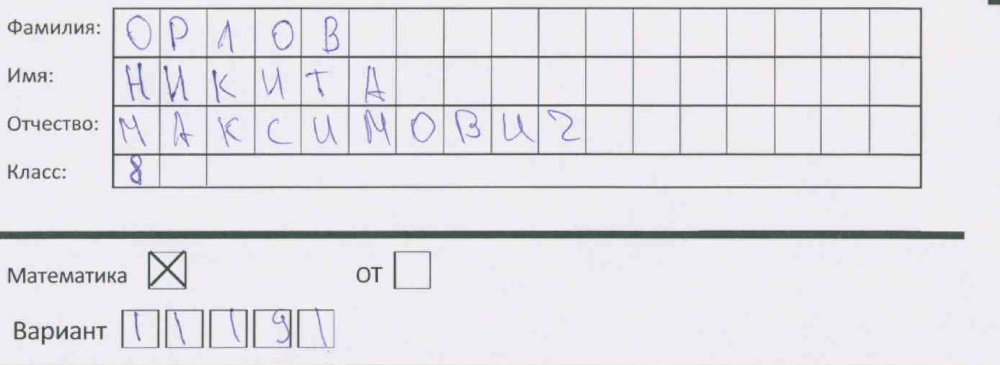 Фамилия: ОРЛОВ
Имя: НИКИТА
Отчество: МАКСИМОВИЧ
Класс: 8
Математика ☒ ОТ ☐
Вариант 11191